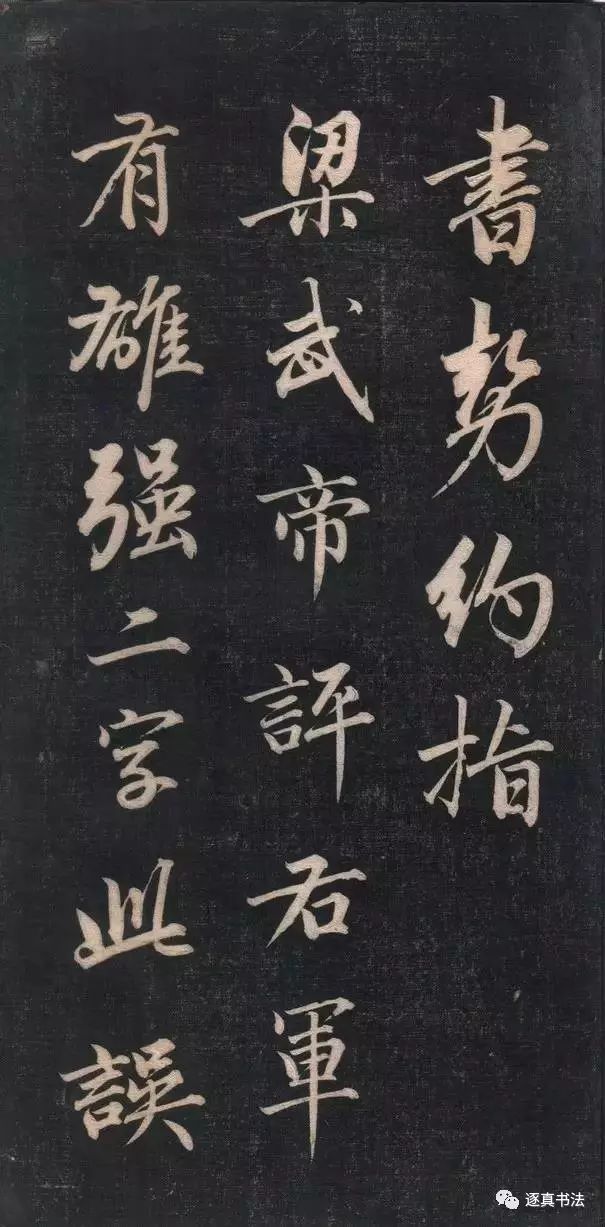 書势约指
梁武帝評右軍
有雄强二字此誤
逐真书法